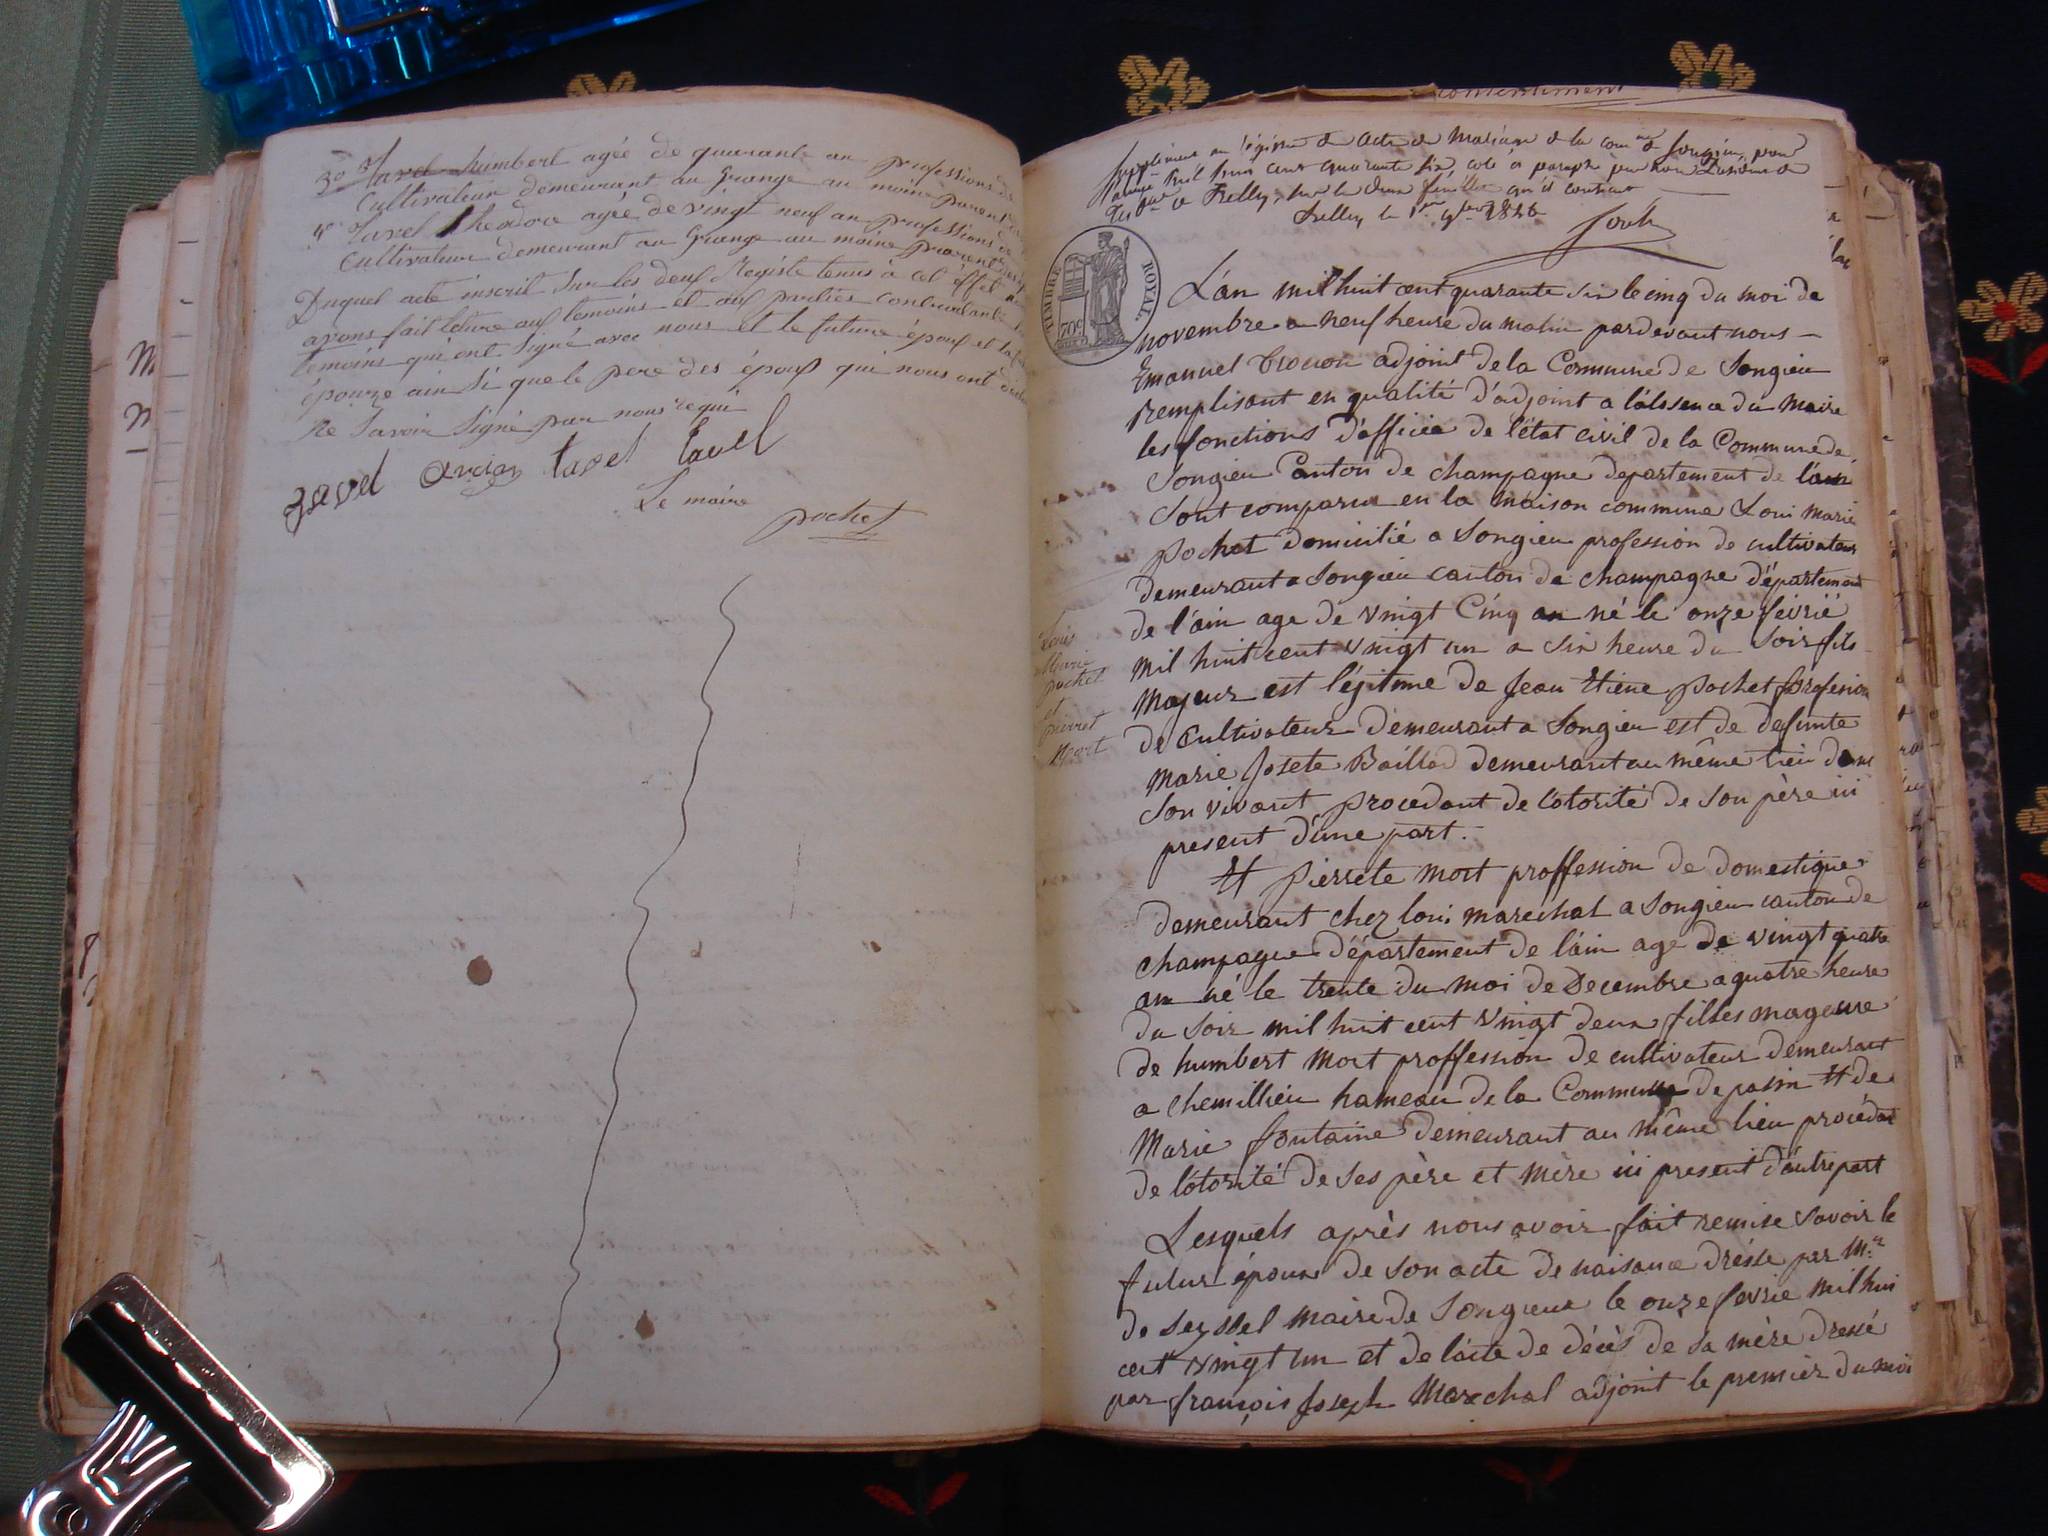 3o Tavel humbert agée de quarante an professions de
Cultivateur demeurant au Grange au moine parent
4e Tavel theodore agée de vingt neuf an professions de
Cultivateur demeurant au Grange au moine parent
Duquel acte inscrit Sur les deux Registe tenus a cet Effet
avons fait letture aux temoins et aux parties contractante
temoins qui ont Signé avec nous et le future époux et
épouze ain Si que le pere des époux qui nous ont
Ne Savoir Signé par nous requi
tavel tavel tavel
Le maire
pochet
consentiment
Supplément au régistre de acte de Mariage de la comne de Songieu, pour
l'année Mil huit cent quarante six coté et paraphé par nous
de Belley, sur le deux feuilles qu'il contient
Belley le 1er 9bre 1846
TIMBRE ROYAL
70c
L'an mil huit cent quarante six le cinq du moi de
novembre a neuf heure du matin pardevant nous
Emanuel adjoint de la Commune de Songieu
remplisant en qualité d'adjoint a l'absence du Maire
les fonctions d'officie de l'état civil de la Commune de
Songieu Canton de champagne departement de l'ain
Sont comparue en la maison commune Loui marie
pochet domicilié a Songieu profession de cultivateur
demeurant a Songieu canton de champagne département
de l'ain age de vingt Cinq an né le onze févrié
mil huit cent vingt un a six heure du Soir fils
Majeur est légitime de Jean Etiene pochet profesion
de Cultivateur demeurant a Songieu est de defunte
Marie Josete Baillod demeurant au même lieu dans
Son vivant procedant de l'otorité de son père ici
present d'une part.
Et pierrete mort proffession de domestique
demeurant chez loui marechal a Songieu canton de
champagne département de l'ain age de vingt quatre
an né le trente du moi de Decembre a quatre heure
du Soir mil huit cent vingt deux filles mageure
de humbert Mort proffession de cultivateur demeurant
a Chemillieu hameau de la Commune de pasin Et de
Marie fontaine demeurant au même lieu procédant
de l'otorité de Ses père et mère ici present d'autre part
Lesquels après nous avoir fait remise savoir le
futur époux de son acte de naisance drésse par Mr
de Seyssel Maire de Songieux le onze fevrie mil hui
cent vingt un et de l'acte de décès de sa mère dressé
par françois Joseph Marechal adjoint le premier du moi
Louis
Marie
pochet
et
pierret
Mort